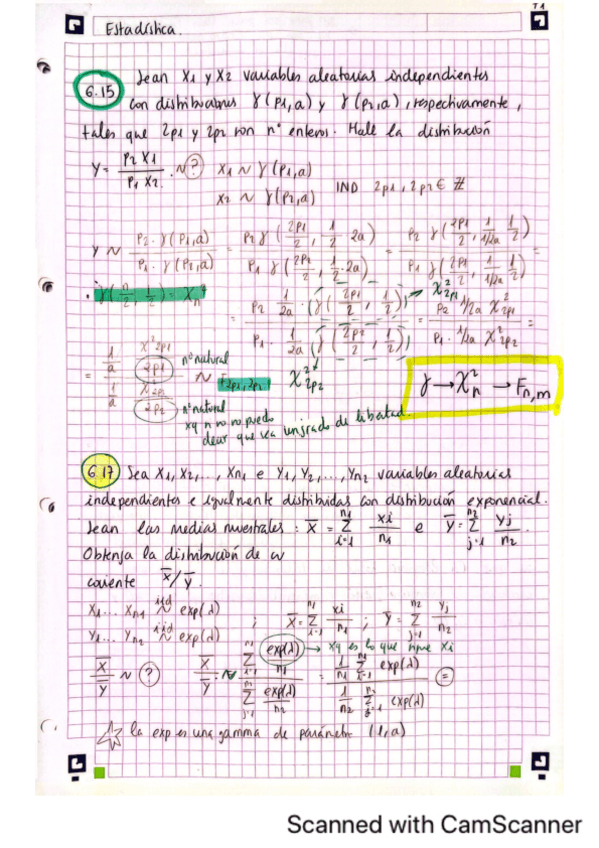 T1
Estadística.
6.15 Sean X1 y X2 variables aleatorias independientes
con distribuciones γ(p1,a) y γ(p2,a), respectivamente,
tales que 2p1 y 2p2 son nº enteros. Halle la distribución
Y = p2 X1 / p1 X2 . ~ ? X1 ~ γ(p1,a)
X2 ~ γ(p2,a) IND 2p1, 2p2 ∈ Z
Y ~ p2 · γ(p1,a) / p1 · γ(p2,a) = p2 γ(2p1/2, 1/2 · 2a) / p1 γ(2p2/2, 1/2 · 2a) = p2 γ(2p1/2, 1/(1/2a) 1/2) / p1 γ(2p2/2, 1/(1/2a) 1/2) =
· γ(n/2, 1/2) = χ²n
= p2 1/2a (γ(2p1/2, 1/2)) → χ²2p1 / p1 · 1/2a (γ(2p2/2, 1/2)) → χ²2p2 = p2 1/2a χ²2p1 / p1 · 1/2a χ²2p2 =
= 1/a χ²2p1/2p1 / 1/a χ²2p2/2p2 ~ F2p1, 2p2
nº natural
nº natural
xq n no no puedo
decir que sea un grado de libertad.
γ → χ²n → Fn,m
6.17 Sea X1, X2, ..., Xn1 e Y1, Y2, ..., Yn2 variables aleatorias
independientes e igualmente distribuidas con distribución exponencial.
Sean las medias muestrales : X̄ = Σ i=1 n1 xi/n1 e Ȳ = Σ j=1 n2 yj/n2 .
Obtenga la distribución de
cociente X̄/Ȳ.
X1... Xn1 iid ~ exp(λ) ; X̄ = Σ i=1 n1 xi/n1 ; Ȳ = Σ j=1 n2 yj/n2
Y1... Yn2 iid ~ exp(λ)
→ xq es lo que sigue xi
X̄/Ȳ ~ ? X̄/Ȳ ~ Σ i=1 n1 exp(λ)/n1 / Σ j=1 n2 exp(λ)/n2 = 1/n1 Σ i=1 n1 exp(λ) / 1/n2 Σ j=1 n2 exp(λ) =
☆ la exp es una gamma de parámetr (1,a)
Scanned with CamScanner